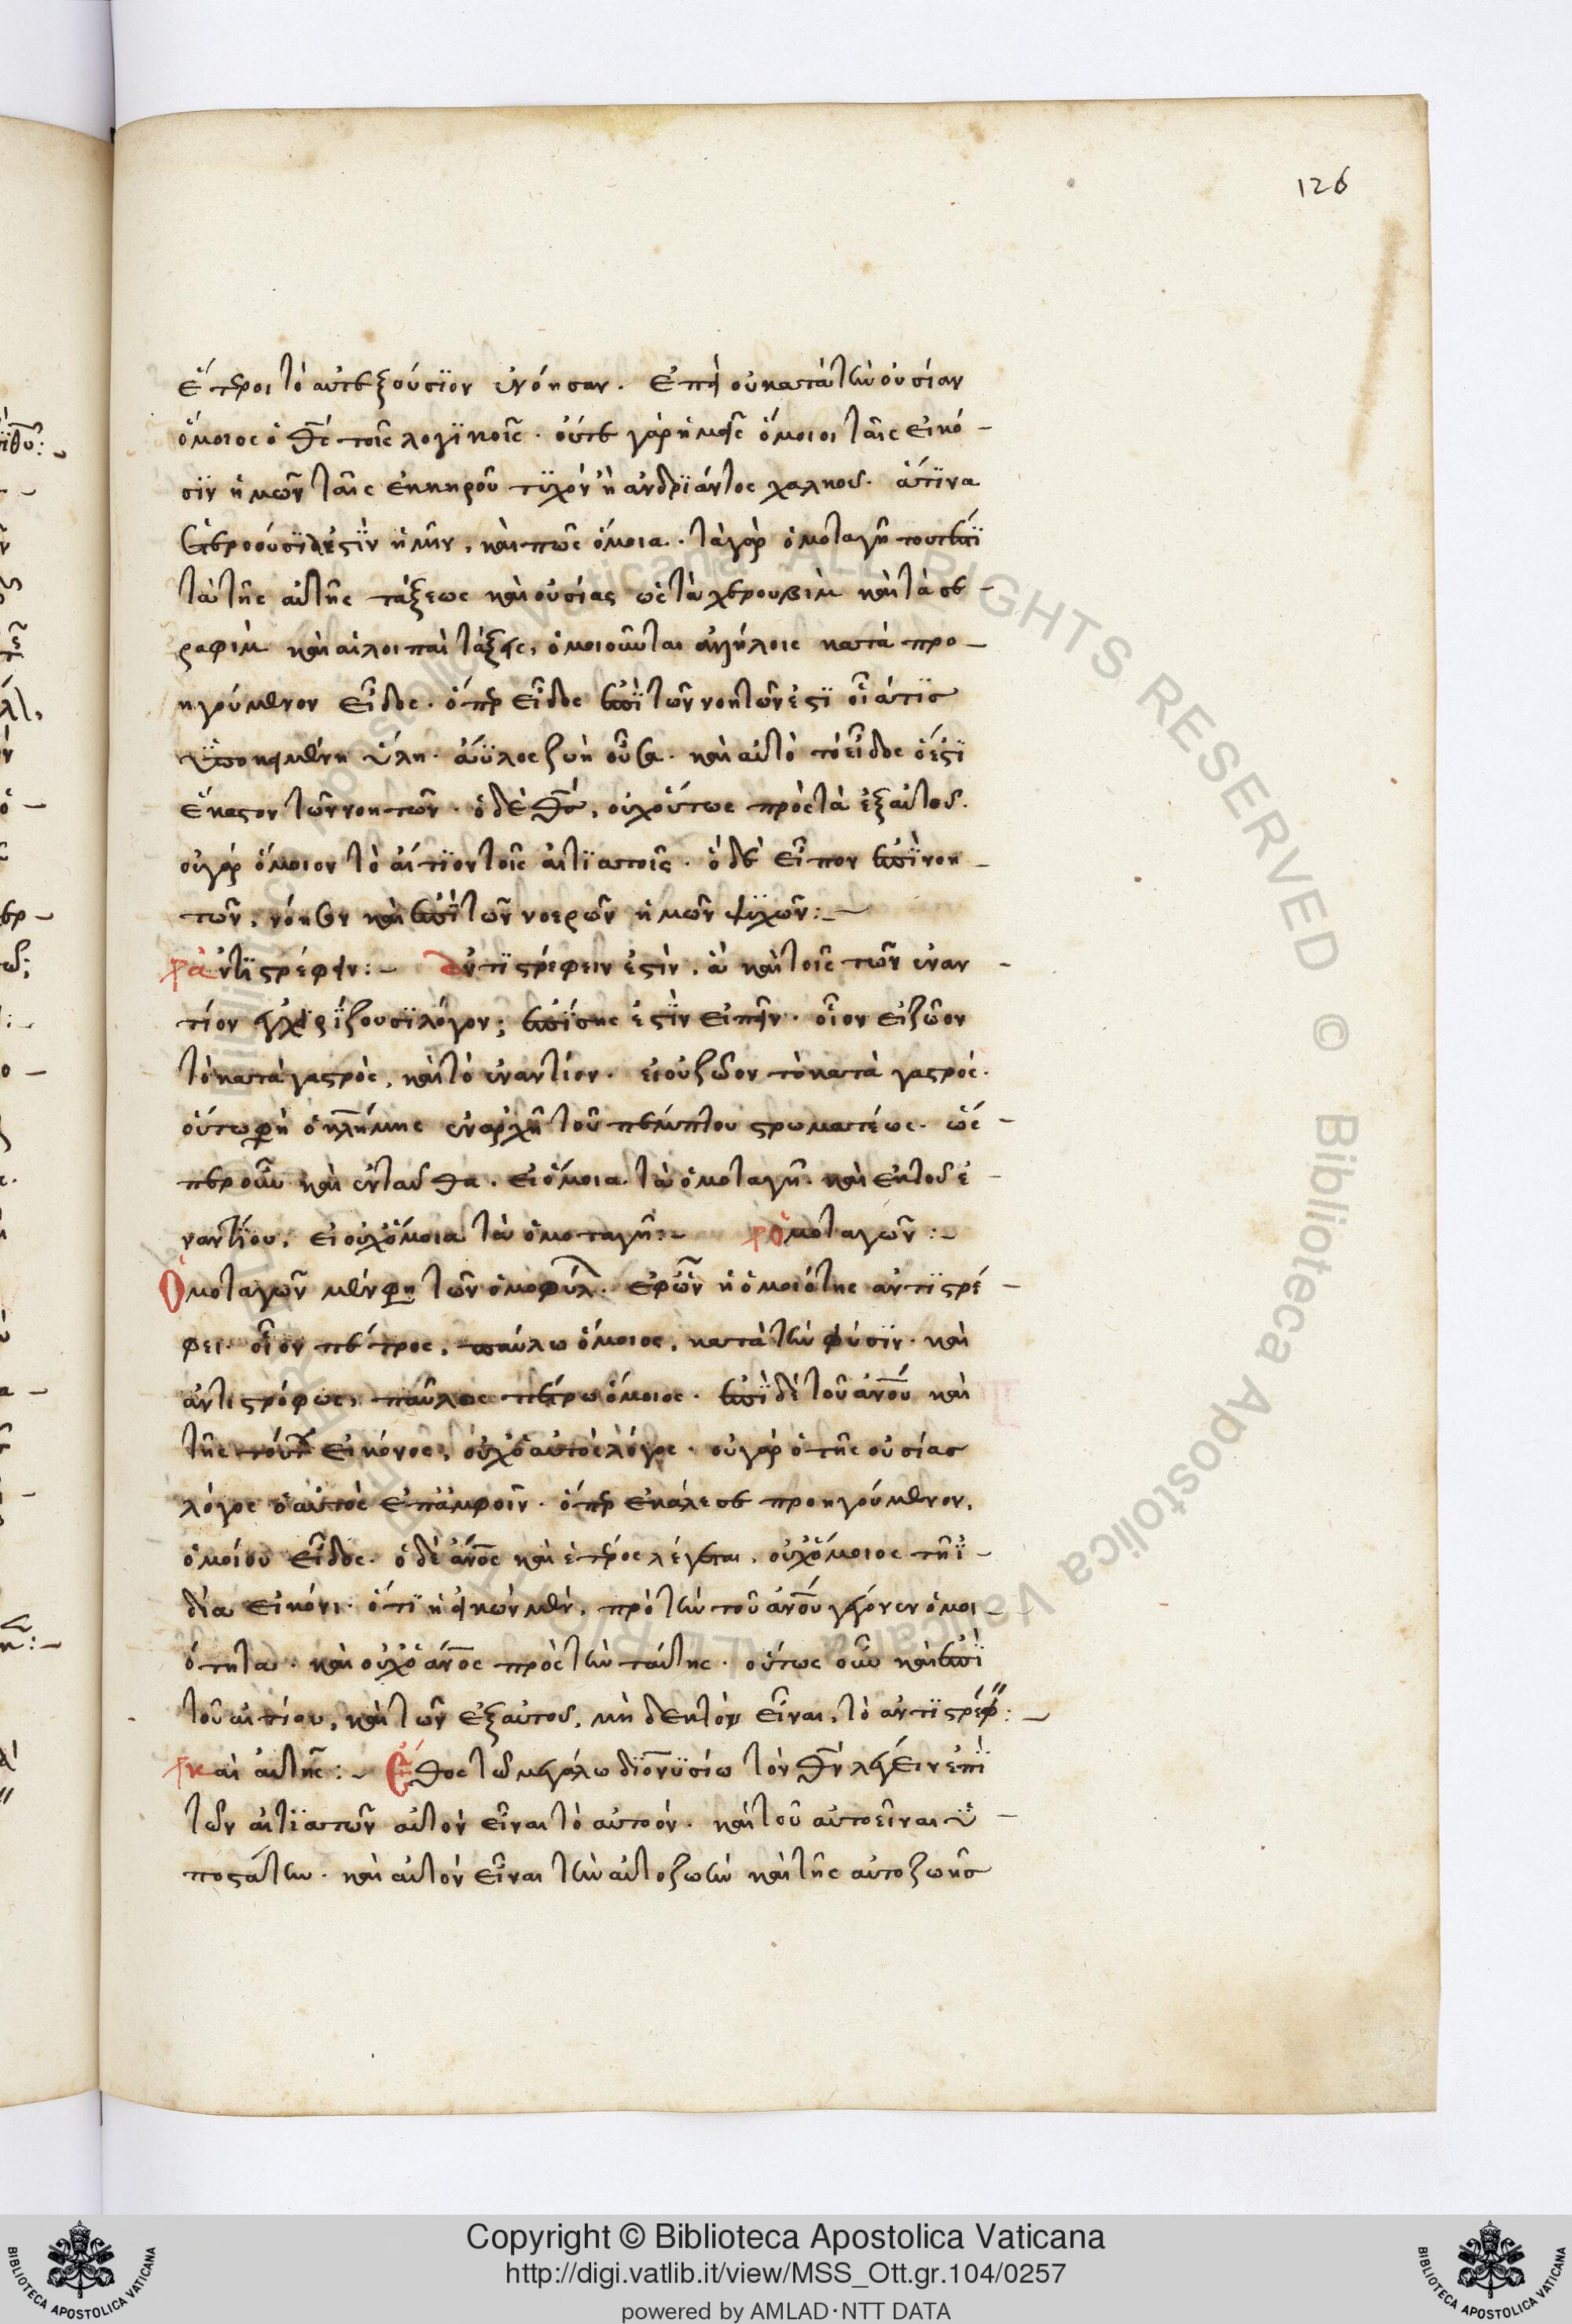 126
ἕτεροι τὸ αὐτεξούσιον ἐνόησαν. ἐπεὶ οὐ κατὰ τὴν οὐσίαν
ὅμοιος ὁ θς τοῖς λογικοῖς. οὔτε γὰρ ἡμεῖς ὅμοιοι ταῖς εἰκό-
σιν ἡμῶν ταῖς ἐκ κηροῦ τυχὸν ἢ ἀνδριάντος χαλκοῦ. ἅτινα
ἑτεροούσιά ἐστιν ἡμῖν, καὶ πῶς ὅμοια. τὰ γὰρ ὁμοταγῆ τουτέστι
τὰ τῆς αὐτῆς τάξεως καὶ οὐσίας ὡς τὰ χερουβὶμ καὶ τὰ σε-
ραφὶμ καὶ αἱ λοιπαὶ τάξεις, ὁμοιοῦνται ἀλλήλοις κατὰ προ-
ηγούμενον εἶδος. ὅπερ εἶδος ἐπὶ τῶν νοητῶν ἐστι οἱονεί τις
ὑποκειμένη ὕλη. ἄϋλος ζωὴ οὖσα. καὶ αὐτὸ τὸ εἶδος ὅ ἐστι
ἕκαστον τῶν νοητῶν. ὁ δὲ θς, οὐχ οὕτως πρὸς τὰ ἐξ αὐτοῦ.
οὐ γὰρ ὅμοιον τὸ αἴτιον τοῖς αἰτιατοῖς. ὃ δὲ εἶπον ἐπὶ νοη-
τῶν, νόησον καὶ ἐπὶ τῶν νοερῶν ἡμῶν ψυχῶν:-
ἀντιστρέφειν:- Ἀντιστρέφειν ἐστὶν, ἃ καὶ τοῖς τῶν ἐναν-
τίον ἐγχειρίζουσι λόγον; ἐπίσης ἐστὶν εἰπεῖν. οἷον εἰ ζῶον
τὸ κατὰ γαστρὸς, καὶ τὸ ἐναντίον. εἰ οὐ ζῶον τὸ κατὰ γαστρός.
οὕτω φησὶ ὁ κλήμης ἐν ἀρχῇ τοῦ πέμπτου στρωματέως. ὥσ-
περ οὖν καὶ ἐνταῦθα. εἰ ὅμοια τὰ ὁμοταγῆ. καὶ ἐκ τοῦ ἐ-
ναντίου, εἰ οὐχ ὅμοια τὰ ὁμοταγῆ:- ὁμοταγῶν:-
Ὁμοταγῶν μέν φησι τῶν ὁμοφύλ. ἐφ' ὧν ἡ ὁμοιότης ἀντιστρέ-
φει. οἷον πέτρος, παύλω ὅμοιος, κατὰ τὴν φύσιν. καὶ
ἀντιστρόφως, παῦλος πέτρω ὅμοιος. ἐπὶ δὲ τοῦ ἀνου καὶ
τῆς τούτου εἰκόνος, οὐχ ὁ αὐτὸς λόγος. οὐ γὰρ ὁ τῆς οὐσίας
λόγος ὁ αὐτὸς ἐπ' ἀμφοῖν. ὅπερ ἐκάλεσε προηγούμενον,
ὁμοίου εἶδος. ὁ δὲ ἀνος καὶ πέτρος λέγεται, οὐχ ὅμοιος τῆ ἰ-
δία εἰκόνι. ὅτι ἡ εἰκὼν μὲν, πρὸς τὴν τοῦ ἀνου γέγονεν ὁμοι-
ότητα. καὶ οὐχ ὁ ἀνος πρὸς τὴν ταύτης. οὕτως οὖν καὶ ἐπὶ
τοῦ αἰτίου, καὶ τῶν ἐξ αὐτοῦ, μὴ δεκτὸν εἶναι, τὸ ἀντιστρέφ:-
καὶ αὐτῆς:- Ἔθος τῶ μεγάλω διονυσίω τὸν θν λέγειν ἐπὶ
τῶν αἰτιατῶν αὐτὸν εἶναι τὸ αὐτοόν. καὶ τοῦ αὐτοεῖναι ὑ-
ποστάτην. καὶ αὐτὸν εἶναι τὴν αὐτοζωὴν καὶ τῆς αὐτοζωῆς
Copyright © Biblioteca Apostolica Vaticana
http://digi.vatlib.it/view/MSS_Ott.gr.104/0257
powered by AMLAD·NTT DATA